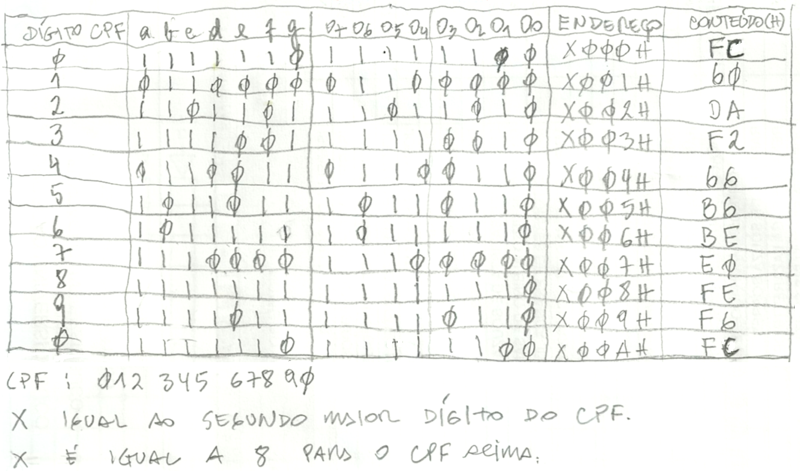 DÍGITO CPF a b c d e f g O7 O6 O5 O4 O3 O2 O1 O0 ENDEREÇO CONTEÚDO(H)
Ø 1 1 1 1 1 1 Ø 1 1 1 1 1 1 Ø Ø XØØØH FC
1 Ø 1 1 Ø Ø Ø Ø Ø 1 1 Ø Ø Ø Ø Ø XØØ1H 6Ø
2 1 1 Ø 1 1 Ø 1 1 1 Ø 1 1 Ø 1 Ø XØØ2H DA
3 1 1 1 1 Ø Ø 1 1 1 1 1 Ø Ø 1 Ø XØØ3H F2
4 Ø 1 1 Ø Ø 1 1 Ø 1 1 Ø Ø 1 1 Ø XØØ4H 66
5 1 Ø 1 1 Ø 1 1 1 Ø 1 1 Ø 1 1 Ø XØØ5H B6
6 1 Ø 1 1 1 1 1 1 Ø 1 1 1 1 1 Ø XØØ6H BE
7 1 1 1 Ø Ø Ø Ø 1 1 1 Ø Ø Ø Ø Ø XØØ7H EØ
8 1 1 1 1 1 1 1 1 1 1 1 1 1 1 Ø XØØ8H FE
9 1 1 1 1 Ø 1 1 1 1 1 1 Ø 1 1 Ø XØØ9H F6
Ø 1 1 1 1 1 1 Ø 1 1 1 1 1 1 Ø Ø XØØAH FC
CPF : Ø12 345 678 9Ø
X IGUAL AO SEGUNDO MAIOR DÍGITO DO CPF.
X É IGUAL A 8 PARA O CPF ACIMA.